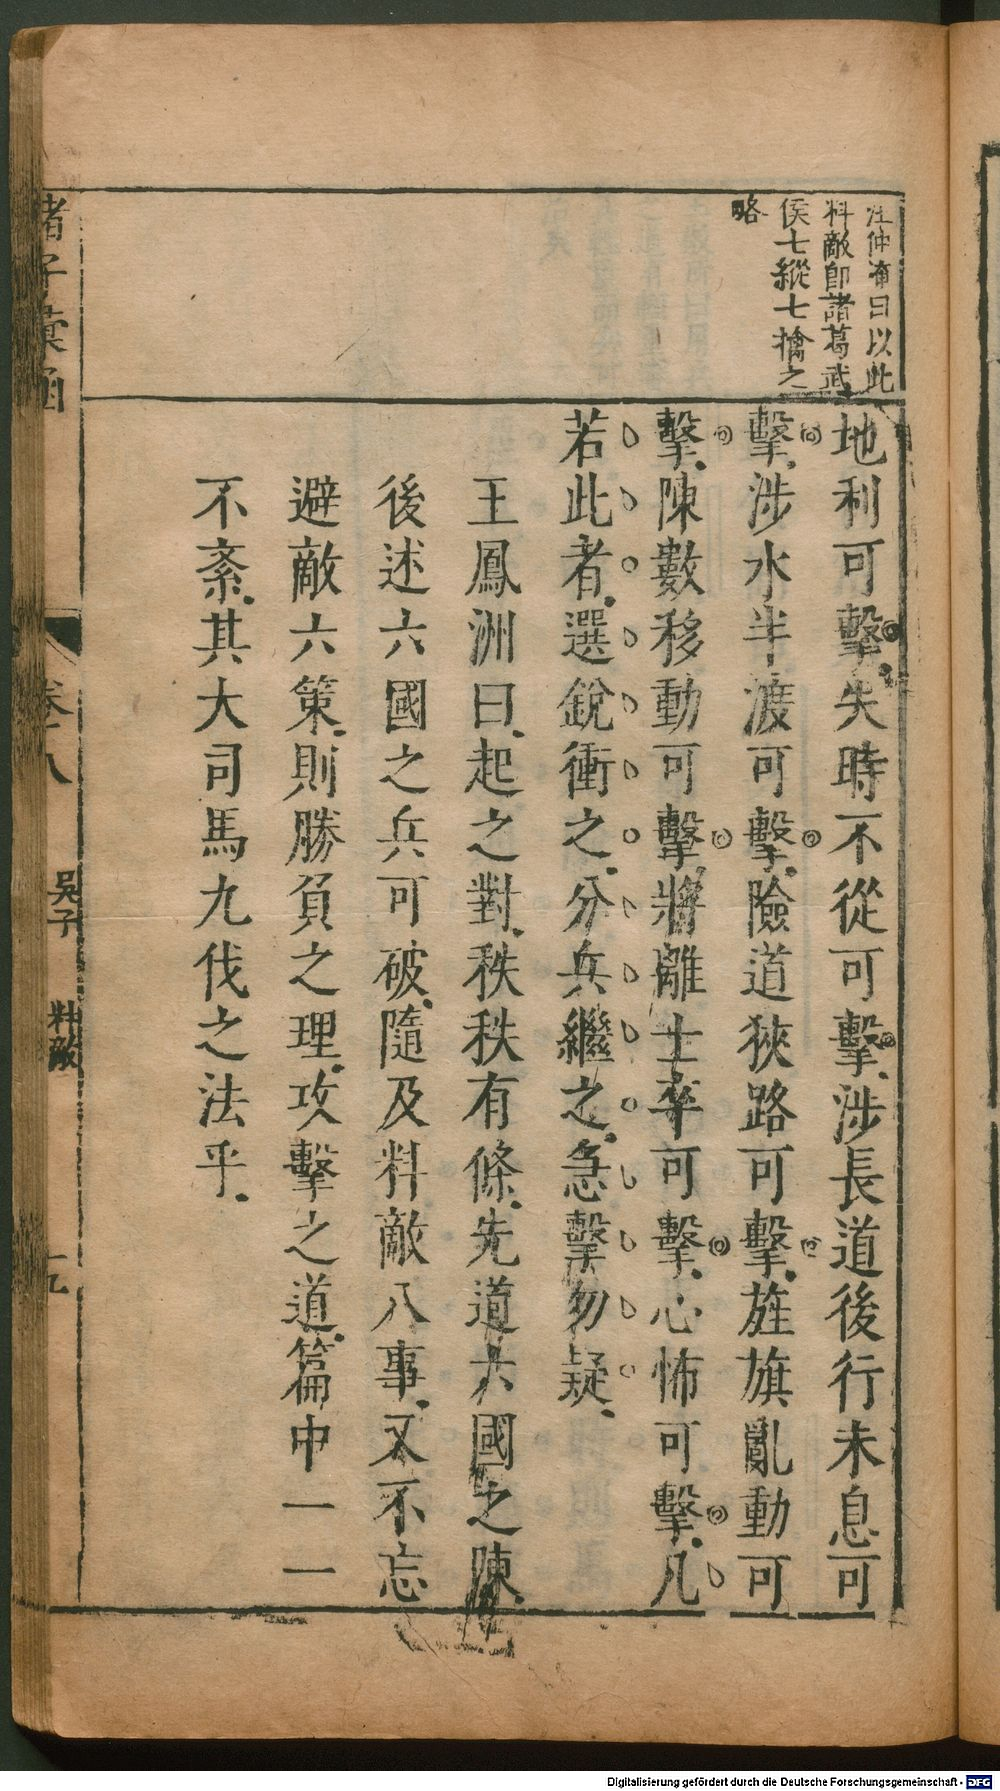 汪仲淹曰以此
料敵即諸葛武
侯七縱七擒之
略
地利可擊失時不從可擊涉長道後行未息可
擊涉水半渡可擊險道狹路可擊旌旗亂動可
擊陳數移動可擊將離士卒可擊心怖可擊凡
若此者選銳衝之分兵繼之急擊勿疑
王鳳洲曰起之對秩秩有條先道六國之陳
後述六國之兵可破隨及料敵八事又不忘
避敵六策則勝負之理攻擊之道篇中一一
不紊其大司馬九伐之法乎
諸子彙函
卷八
吳子
料敵
Digitalisierung gefördert durch die Deutsche Forschungsgemeinschaft - DFG